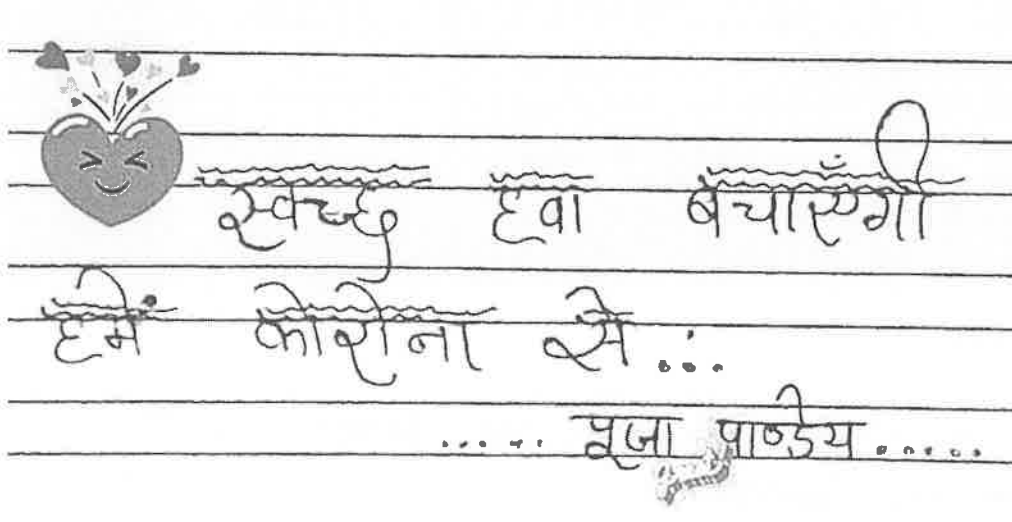 स्वच्छ हवा बचाएँगी
हमें कोरोना से ...
..... पूजा पाण्डेय .....